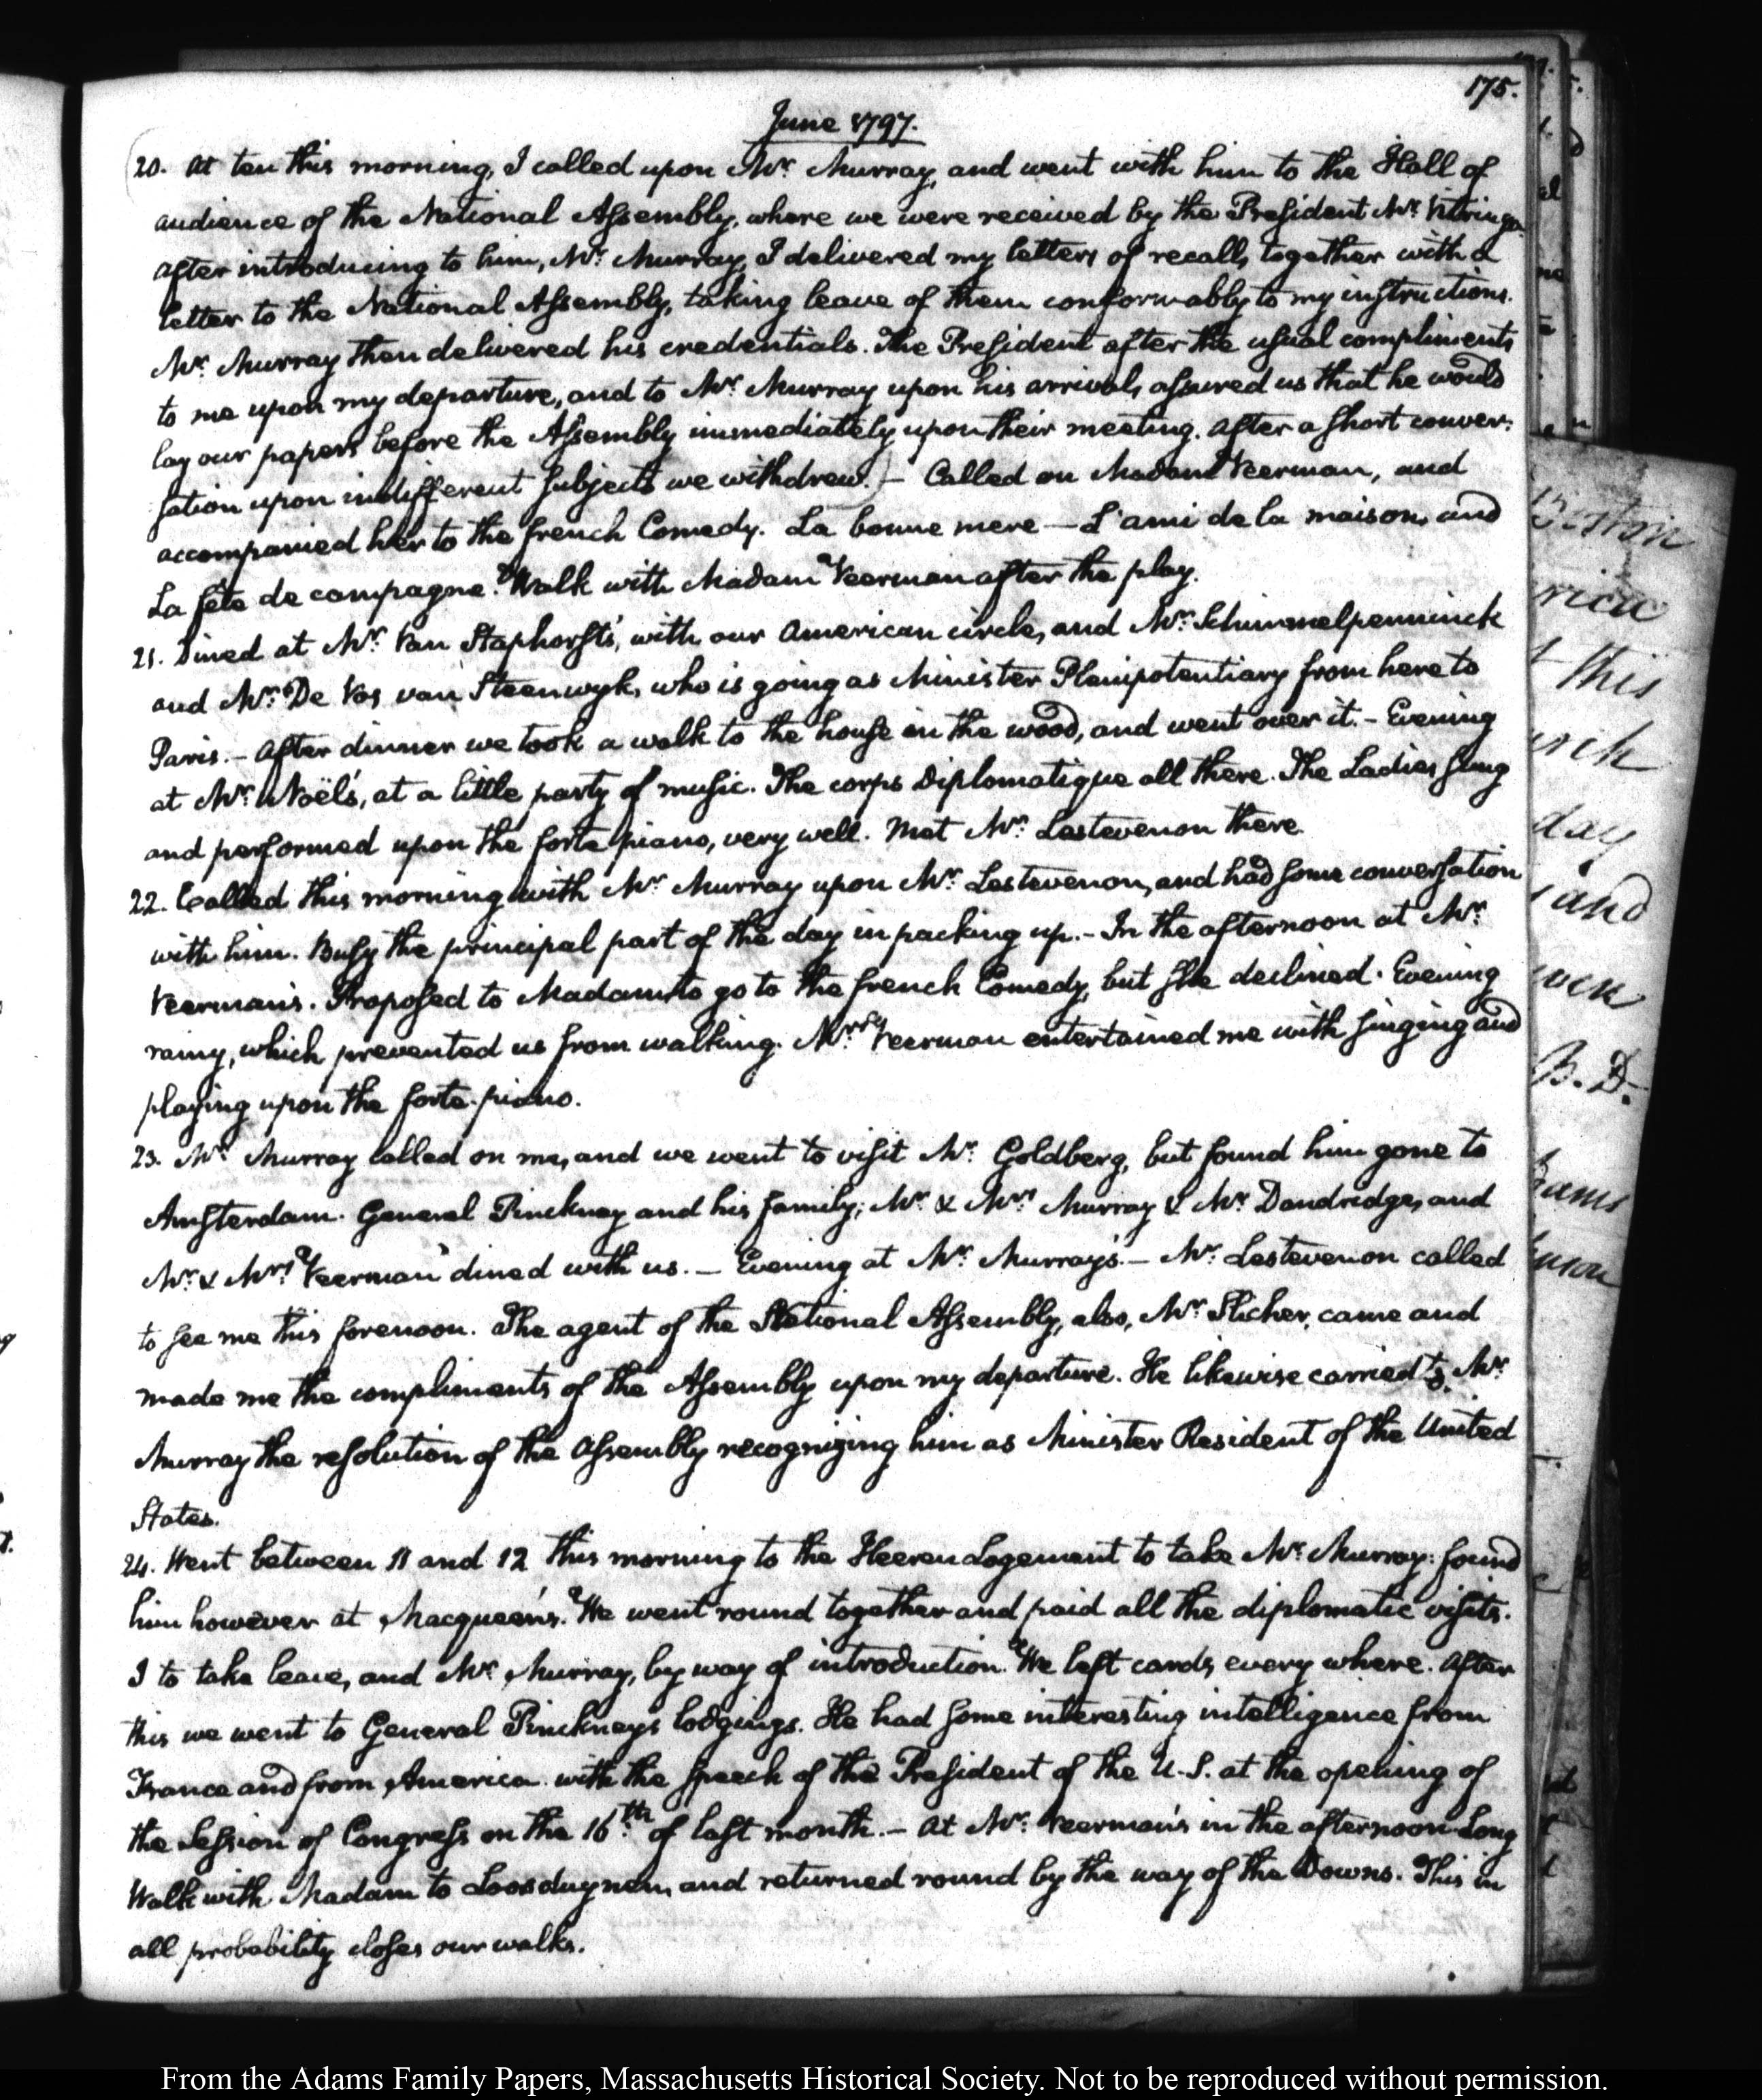 175.
June 1797.
20. At ten this morning, I called upon Mr. Murray, and went with him to the Hall of
audience of the National Assembly, where we were received by the President Mr. Vitringa.
After introducing to him, Mr. Murray, I delivered my letters of recall, together with a
letter to the National Assembly, taking leave of them conformably to my instructions.
Mr. Murray then delivered his credentials. The President after the usual compliments
to me upon my departure, and to Mr. Murray upon his arrival, assured us that he would
lay our papers before the Assembly immediately upon their meeting. After a short conver-
sation upon indifferent subjects we withdrew.) — Called on Madam Veerman, and
accompanied her to the french Comedy. La bonne mere — L'ami de la maison, and
La fête de campagne. Walk with Madam Veerman after the play.
21. Dined at Mr. Van Staphorst's, with our American circle, and Mr. Schimmelpenninck
and Mr. De Vos van Steenwyk, who is going as Minister Plenipotentiary from here to
Paris. — After dinner we took a walk to the house in the wood, and went over it. — Evening
at Mr. Noël's, at a little party of music. The corps Diplomatique all there. The Ladies sung
and performed upon the forte piano, very well. Met Mr. Lestevenon there.
22. Called this morning with Mr. Murray upon Mr. Lestevenon, and had some conversation
with him. Busy the principal part of the day in packing up. — In the afternoon at Mr.
Veerman's. Proposed to Madam to go to the french Comedy, but she declined. Evening
rainy, which prevented us from walking. Mrs. Veerman entertained me with singing and
playing upon the forte-piano.
23. Mr. Murray called on me, and we went to visit Mr. Goldberg, but found him gone to
Amsterdam. General Pinckney and his family; Mr. & Mrs. Murray & Mr. Dandridge, and
Mr. & Mrs. Veerman dined with us. — Evening at Mr. Murray's. — Mr. Lestevenon called
to see me this forenoon. The agent of the National Assembly, also, Mr. Slicher, came and
made me the compliments of the Assembly upon my departure. He likewise carried to Mr.
Murray the resolution of the Assembly recognizing him as Minister Resident of the United
States.
24. Went between 11 and 12 this morning to the Heeren Logement to take Mr. Murray: found
him however at Macqueen's. We went round together and paid all the diplomatic visits.
I to take leave, and Mr. Murray, by way of introduction. We left cards, every where. After
this we went to General Pinckney's lodgings. He had some interesting intelligence from
France and from America with the speech of the President of the U.S. at the opening of
the Session of Congress on the 16th. of last month. — At Mr. Veerman's in the afternoon. Long
Walk with Madam to Loosduynen, and returned round by the way of the Downs. This in
all probability closes our walks.
this
day
and
B. D.
From the Adams Family Papers, Massachusetts Historical Society. Not to be reproduced without permission.